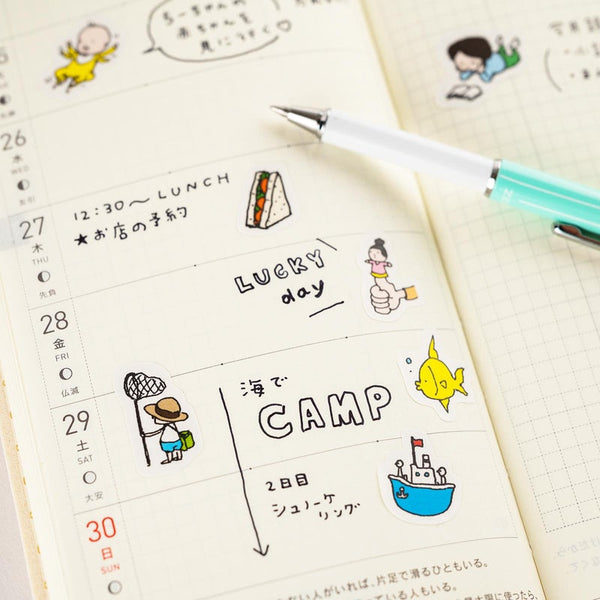 ちーちゃんの
赤ちゃんを
見に行く♡
26
水
WED
友引
27
木
THU
先負
12:30〜LUNCH
★お店の予約
28
金
FRI
仏滅
LUCKY
day
29
土
SAT
大安
海で
CAMP
30
日
SUN
2日目
シュノーケ
リング
ない人がいれば、片足で滑るひともいる。
ている人もいる。